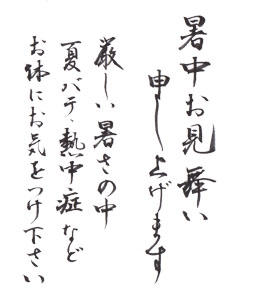 暑中お見舞い
申し上げます
厳しい暑さの中
夏バテ、熱中症など
お体にお気をつけ下さい